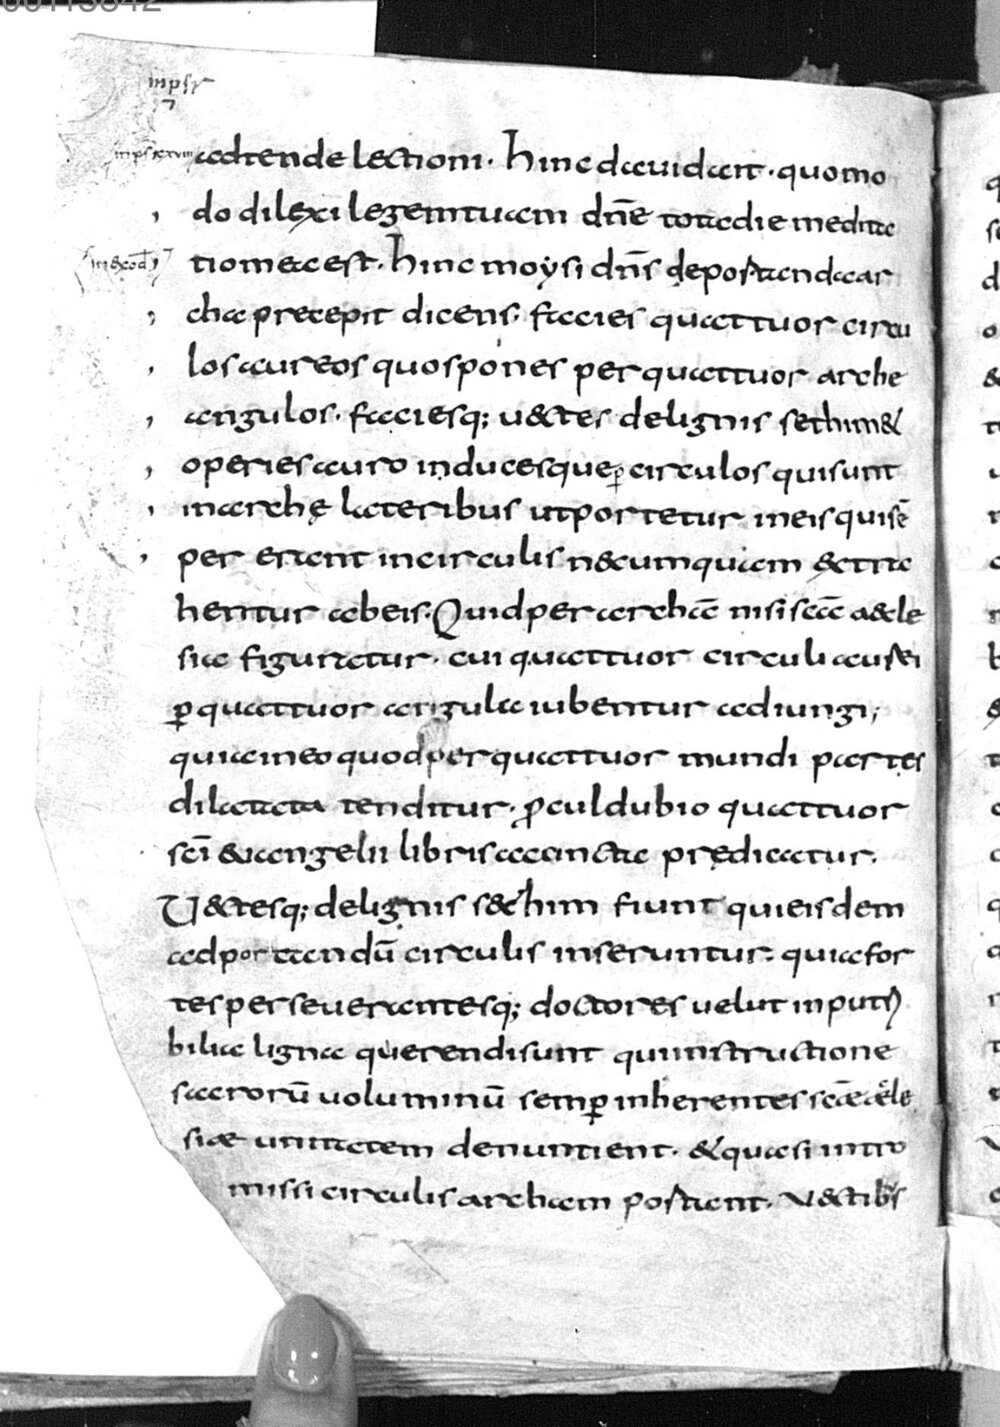 inpsr
inps cxviii adtende lectioni. hinc dauid ait. quomo
do dilexi legem tuam dn̄e tota die medita
in exod tio mea est. hinc moẏsi dn̄s de postanda ar
cha precepit dicens. facies quattuor circu
los aureos quos pones per quattuor arche
angulos. faciesq; uectes de lignis sethim &
operies auro inducesque ꝑ circulos qui sunt
in archę lateribus ut portetur in eis qui sē
per erunt in circulis nec umquam extra
hentur ab eis. Quid per archā nisi scā aeccle
sia figuratur. cui quattuor circuli aurei
ꝑ quattuor angula iubentur adiungi;
quia in eo quod per quattuor mundi partes
dilatata tenditur. ꝓcul dubio quattuor
scī euangelii libris accincta prędicatur.
U&tesq; de lignis s&him fiunt qui eisdem
ad portandū circulis inseruntur. quia for
tes perseuerantesq; doctores uelut inputri
bilia ligna querendi sunt qui instructione
sacrorū uoluminū semꝑ inherentes scāe aecle
siae unitatem denuntient. & quasi intro
missi circulis archam postient. U&tibus